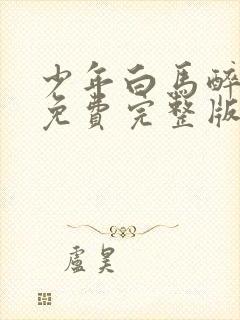 少年白馬醉
免費完整版
盧昊